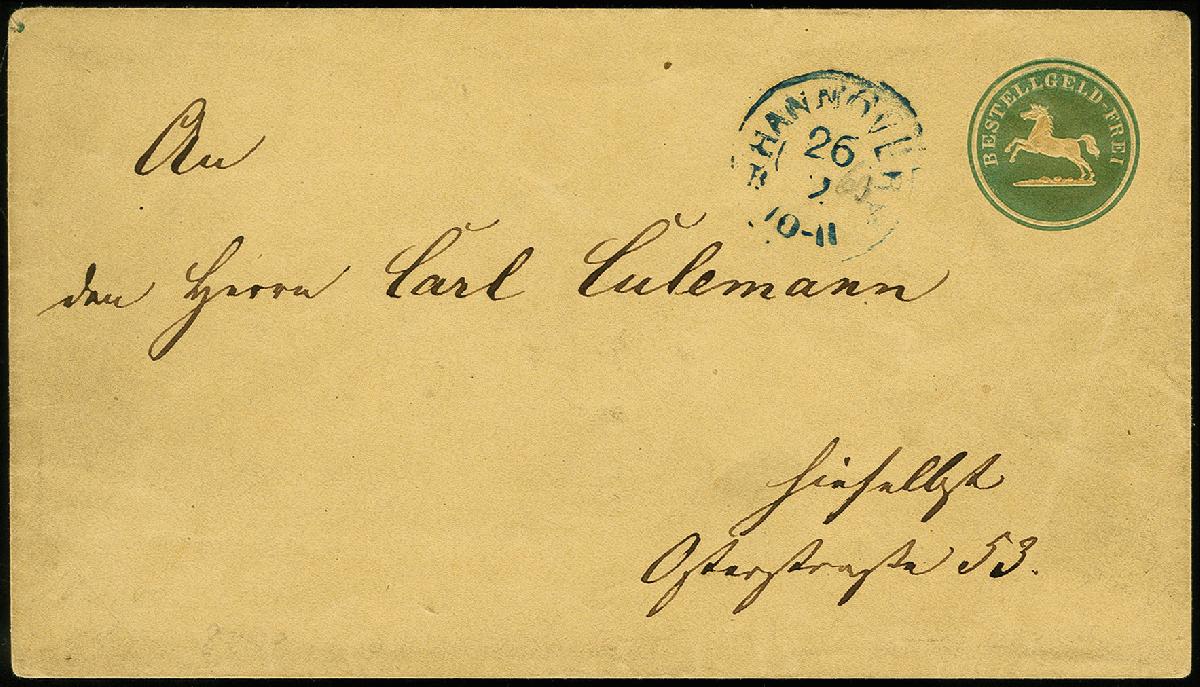 BESTELLGELD-FREI
HANNOVER
26
2
10-11
An
den Herrn Carl Culemann
hieselbst
Osterstraße 53.